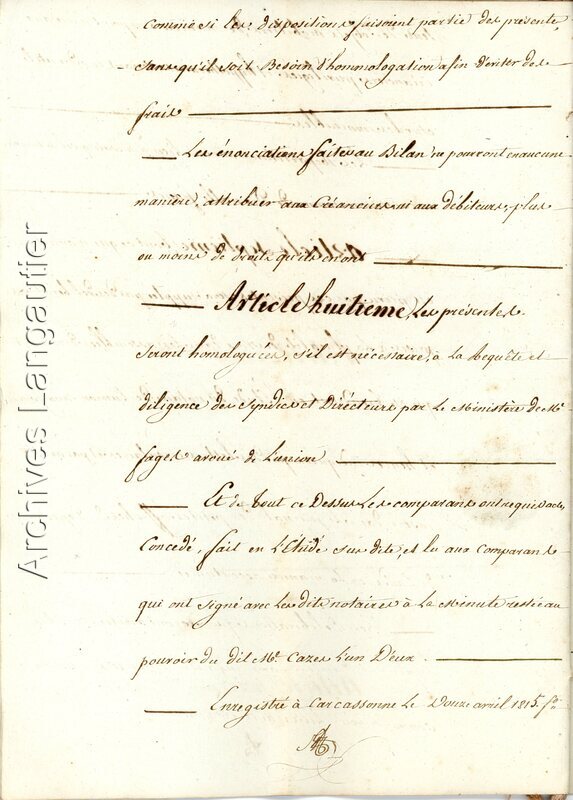 Comme si les dispositions faisoient partie des présente,
sans qu'il soit Besoin d'hommologation afin d'eviter des
frais
Les énonciations faites au Bilan ne pourront en aucune
manière, attribuer aux Créanciers ni aux débiteurs, plus
ou moins de droits qu'ils en ont
Article huitieme, Les présentes
seront homologuées, s'il est nécessaire, à La Requête et
diligence des Syndics et Directeurs par Le Ministère de Me
fages avoué de Lunion
Et de tout ce Dessus Les comparans ont requis acte
Concedé, fait en L'Etude sus dite, et lu aux comparans
qui ont signé avec Les dits notaires à La Minute restée au
pouvoir du dit Me. Cazes L'un D'eux.
Enregistré à Carcassonne Le Douze avril 1815. fo.
Archives Langautier